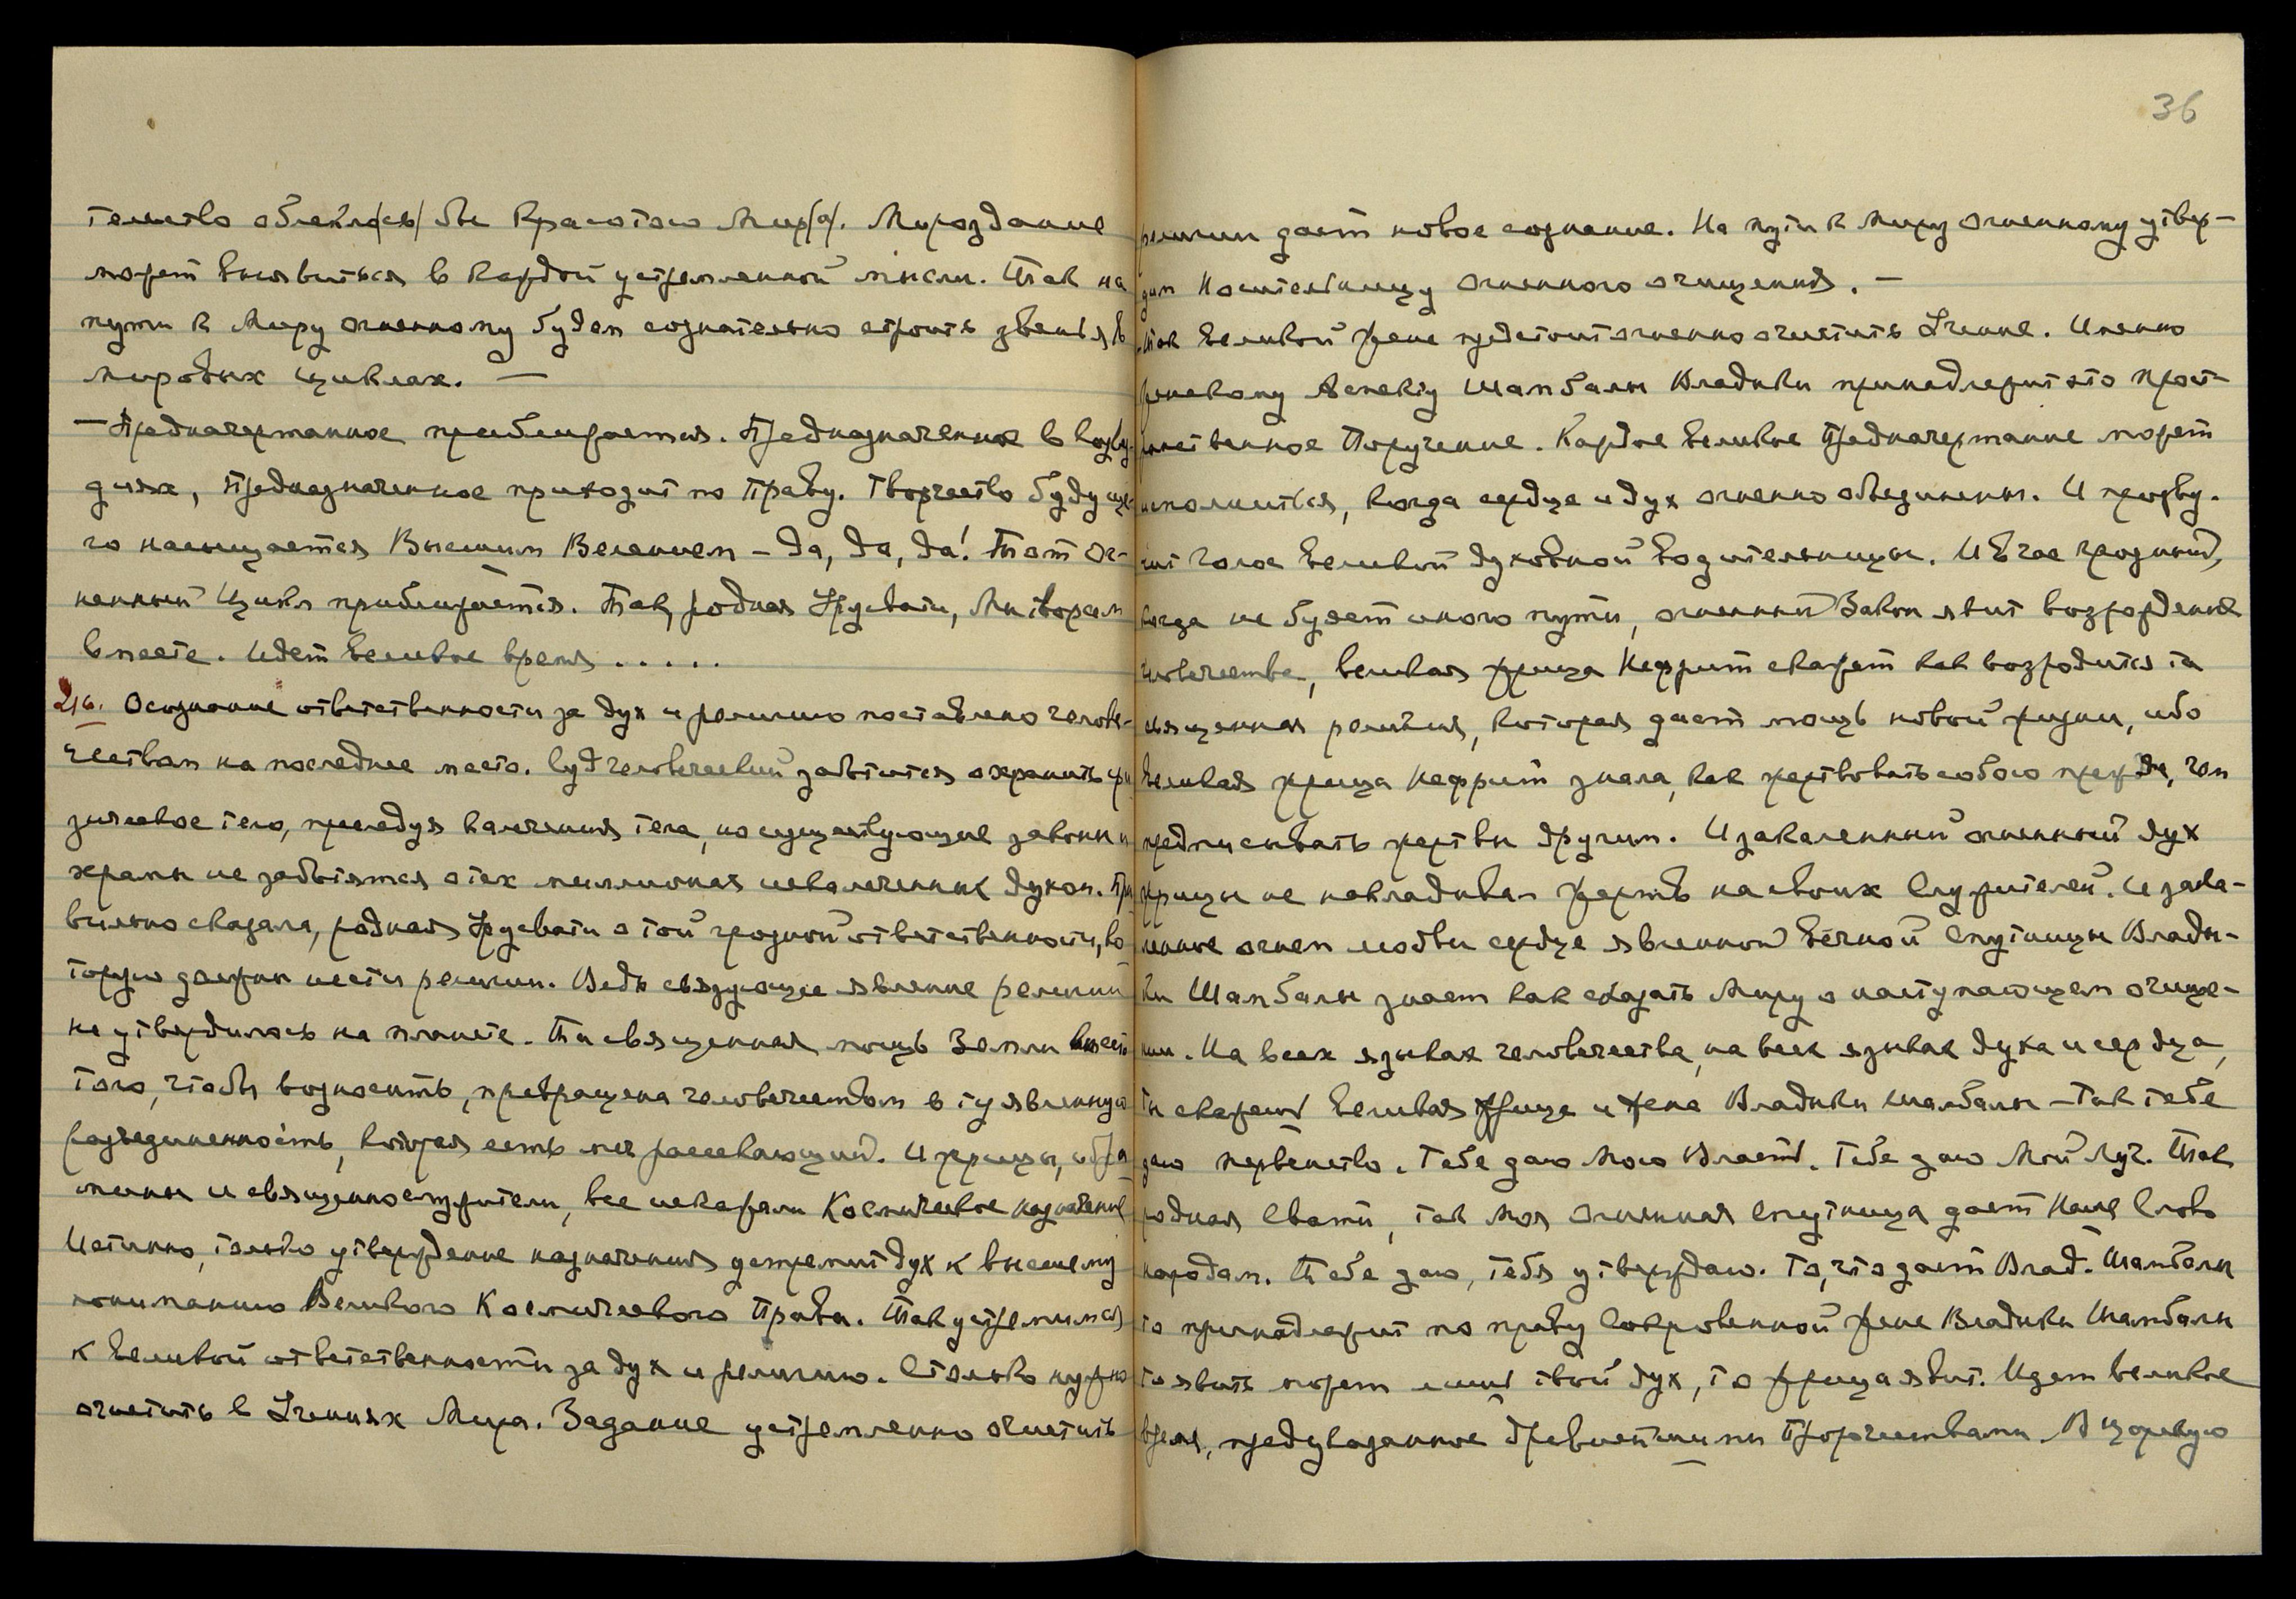 тельство облекл/ся/ бы красотою Мир/а/. Мироздание
может выявиться в каждой устремленной мысли. Так на
пути к Миру огненному будем сознательно строить звенья в
мировых циклах. —
— Предначертанное приближается. Предназначенное в созву-
диях, предназначенное приходит по Праву. Творчество будуще-
го насыщается Высшим Велением – да, да, да! Так ог-
ненный Цикл приближается. Так, родная Урусвати, Мы творим
вместе. Идет великое время . . . . .
216. Осознание ответственности за дух и религию поставлено челове-
чеством на последнее место. Суд человеческий заботится охранить фи
зическое тело, преследуя калечения тела, но существующие законы и
храмы не заботятся о тех миллионах искалеченных духом. Пра
вильно сказала, родная Урусвати о той грозной ответственности, ко
торую должны нести религии. Ведь связующее явление религий
не утвердилось на планете. Та священная мощь Земли вместо
того, чтобы возносить, превращена человечеством в ту явленную
разъединенность, которая есть меч рассекающий. И жрецы, и бра
мины и священнослужители, все искажали Космическое назначение
Истинно, только утверждение назначения устремит дух к высшему
пониманию Великого Космического Права. Так устремимся
к великой ответственности за дух и религию. Столько нужно
очистить в Учениях Мира. Задание устремленно очистить
36
религии дает новое сознание. На пути к Миру огненному утвер-
дим Носительницу огненного очищения. —
Так великой Жене предстоит огненно очистить Учение. Именно
женскому Аспекту Шамбалы Владыки принадлежит это прост-
ранственное Поручение. Каждое великое Предначертание может
исполниться, когда сердце и дух огненно объединены. И прозву-
чит голос великой духовной водительницы. И в час грозный,
когда не будет иного пути, огненный Закон явит возрождение
человечества, великая жрица Нефрит скажет как возродится та
священная религия, которая дает мощь новой жизни, ибо
великая жрица Нефрит знала, как жертвовать собою прежде, чем
предписывать жертвы другим. И закаленный огненный дух
жрицы не накладывал жертв на своих служителей. И зака-
ленное огнем любви сердце явленной вечной спутницы Влады-
ки Шамбалы знает как сказать Миру о наступающем очище-
нии. На всех языках человечества, на всех языках духа и сердца,
ты скажешь великая Жрица и Жена Владыки Шамбалы – Так тебе
даю первенство. Тебе даю Мою Власть. Тебе даю Мой Луч. Так
родная Свати, так Моя огненная спутница дает Наше Слово
народам. Тебе даю, тебя утверждаю. То, что дает Влад. Шамбалы
то принадлежит по праву сокровенной Жене Владыки Шамбалы
то явить может лишь твой дух, то жрица явит. Идет великое
время, предуказанное древнейшими Пророчествами. В